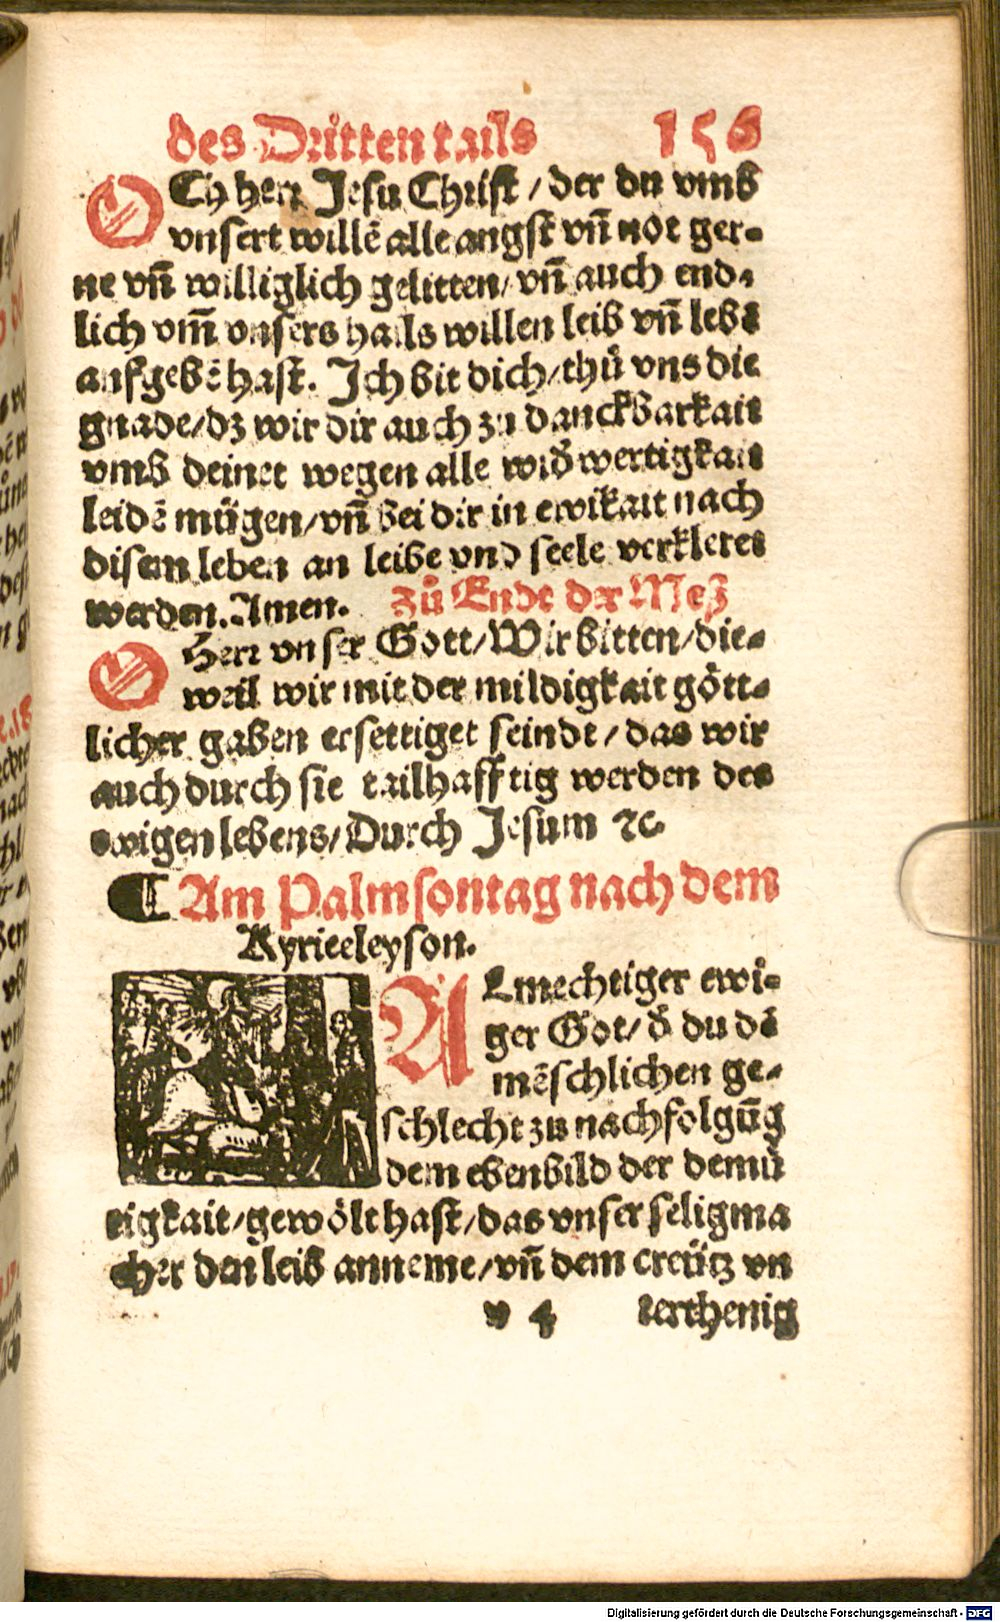 des Dritten tails 156
OCh herr Jesu Christ / der du vmb
vnsert willē alle angst vn̄ not ger-
ne vn̄ williglich gelitten / vn̄ auch end-
lich vm̄ vnsers hails willen leib vn̄ lebē
aufgebē hast. Ich bit dich / thů vns die
gnade / dz wir dir auch zu danckbarkait
vmb deinet wegen alle widwertigkait
leidē mügen / vn̄ bei dir in ewikait nach
disem leben an leibe vnd seele verkleret
werden. Amen. Zů Ende der Meß
O Herr vnser Gott / Wir bitten / die-
weil wir mit der mildigkait gött-
licher gaben ersettiget seindt / das wir
auch durch sie tailhafftig werden des
ewigen lebens / Durch Jesum ꝛc.
¶ Am Palmsontag nach dem
Kyrieeleyson.
ALmechtiger ewi-
ger Got / d̄ du dē
mēschlichen ge-
schlecht zu nachfolgūg
dem ebenbild der demü
tigkait / gewölt hast / das vnser seligma
cher den leib anneme / vn̄ dem creütz vn
v 4 terthenig
Digitalisierung gefördert durch die Deutsche Forschungsgemeinschaft - DFG